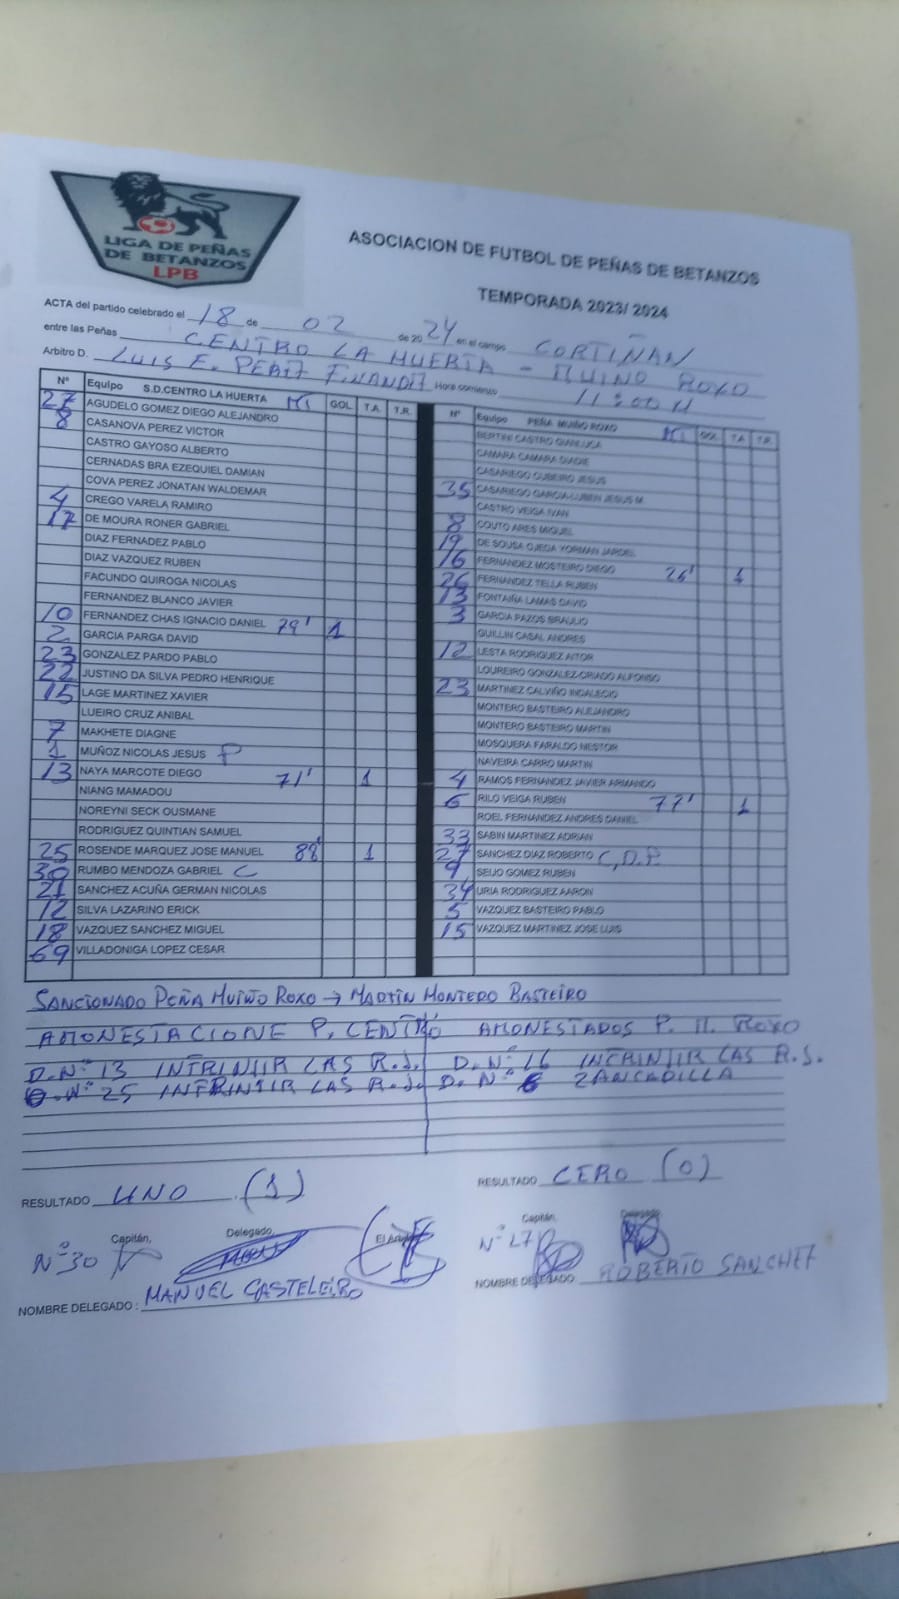 LIGA DE PEÑAS
DE BETANZOS
LPB
ASOCIACION DE FUTBOL DE PEÑAS DE BETANZOS
TEMPORADA 2023/ 2024
ACTA del partido celebrado el 18 de 02 de 2024 en el campo CORTIÑAN
entre las Peñas CENTRO LA HUERTA - MUIÑO ROXO
Arbitro D. LUIS E. Hora comienzo 11:00 H
Nº Equipo S.D.CENTRO LA HUERTA GOL T.A. T.R.
27 AGUDELO GOMEZ DIEGO ALEJANDRO
8 CASANOVA PEREZ VICTOR
CASTRO GAYOSO ALBERTO
CERNADAS BRA EZEQUIEL DAMIAN
COVA PEREZ JONATAN WALDEMAR
4 CREGO VARELA RAMIRO
17 DE MOURA RONER GABRIEL
DIAZ FERNADEZ PABLO
DIAZ VAZQUEZ RUBEN
FACUNDO QUIROGA NICOLAS
FERNANDEZ BLANCO JAVIER
10 FERNANDEZ CHAS IGNACIO DANIEL 79' 1
2 GARCIA PARGA DAVID
23 GONZALEZ PARDO PABLO
22 JUSTINO DA SILVA PEDRO HENRIQUE
15 LAGE MARTINEZ XAVIER
LUEIRO CRUZ ANIBAL
7 MAKHETE DIAGNE
1 MUÑOZ NICOLAS JESUS P
13 NAYA MARCOTE DIEGO 71' 1
NIANG MAMADOU
NOREYNI SECK OUSMANE
RODRIGUEZ QUINTIAN SAMUEL
25 ROSENDE MARQUEZ JOSE MANUEL 88' 1
30 RUMBO MENDOZA GABRIEL C
21 SANCHEZ ACUÑA GERMAN NICOLAS
12 SILVA LAZARINO ERICK
18 VAZQUEZ SANCHEZ MIGUEL
69 VILLADONIGA LOPEZ CESAR
Nº Equipo PEÑA MUIÑO ROXO GOL T.A T.R.
BERTINI CASTRO GIANLUCA
CAMARA CAMARA DIADIE
CASARIEGO CUBEIRO JESUS
35 CASARIEGO GARCIA-LUBEN JESUS M.
CASTRO VEIGA IVAN
8 COUTO ARES MIGUEL
19 DE SOUSA OJEDA YORMAN JARDEL
16 FERNANDEZ MOSTEIRO DIEGO 26' 1
26 FERNANDEZ TELLA RUBEN
13 FONTAIÑA LAMAS DAVID
3 GARCIA PAZOS BRAULIO
GUILLIN CASAL ANDRES
12 LESTA RODRIGUEZ AITOR
LOUREIRO GONZALEZ-CRIADO ALFONSO
23 MARTINEZ CALVIÑO INDALECIO
MONTERO BASTEIRO ALEJANDRO
MONTERO BASTEIRO MARTIN
MOSQUERA FARALDO NESTOR
NAVEIRA CARRO MARTIN
4 RAMOS FERNANDEZ JAVIER ARMANDO
6 RILO VEIGA RUBEN 77' 1
ROEL FERNANDEZ ANDRES DANIEL
33 SABIN MARTINEZ ADRIAN
27 SANCHEZ DIAZ ROBERTO C, D.P.
9 SEIJO GOMEZ RUBEN
34 URIA RODRIGUEZ AARON
5 VAZQUEZ BASTEIRO PABLO
15 VAZQUEZ MARTINEZ JOSE LUIS
SANCIONADO PEÑA MUIÑO ROXO → MARTIN MONTERO BASTEIRO
AMONESTACIONE P. CENTRO AMONESTADOS P. M. ROXO
D. Nº 13 INFRINJIR LAS R.J. D. Nº 16 INFRINJIR LAS R.J.
D. Nº 25 INFRINJIR LAS R.J. D. Nº 6 ZANCADILLA
RESULTADO UNO (1)
RESULTADO CERO (0)
Capitán, Delegado, El Arbitro
Nº 30
NOMBRE DELEGADO : MANUEL CASTELEIRO
Capitán, Delegado,
Nº 27
NOMBRE DELEGADO ROBERTO SANCHEZ